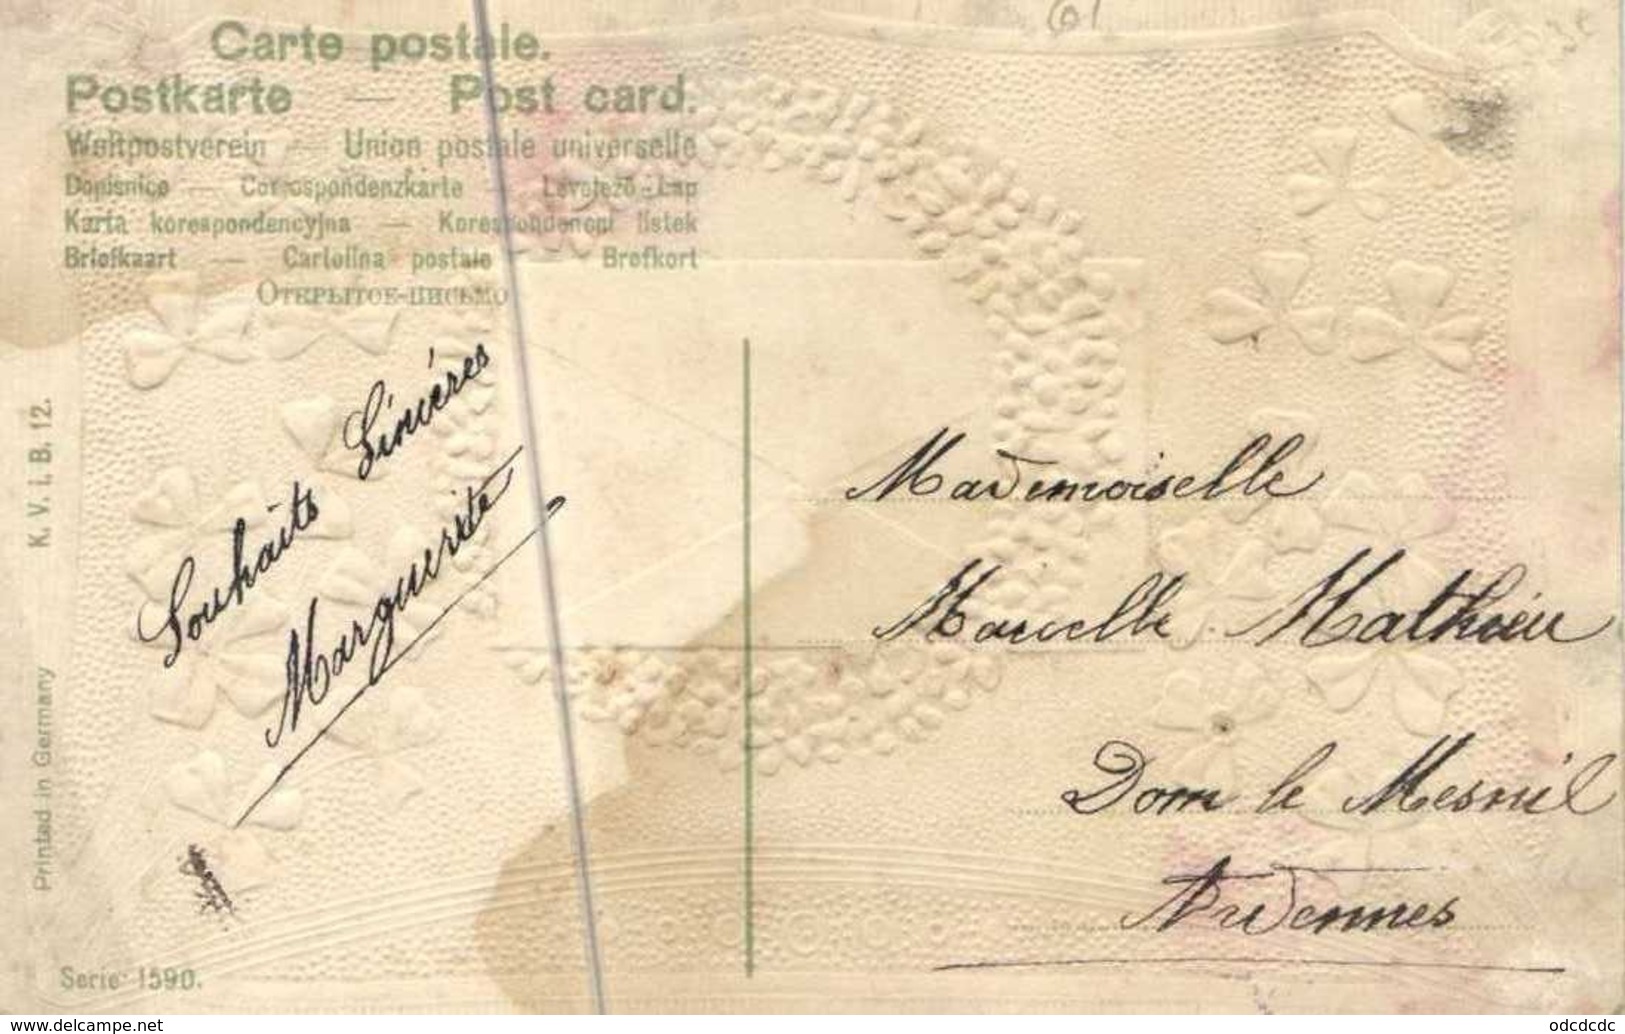 Carte postale.
Postkarte — Post card.
Weltpostverein — Union postale universelle
Dopisnice — Correspondenzkarte — Levelező-Lap
Karta korespondencyjna — Korespondencni listek
Briefkaart — Cartolina postale — Brefkort
Открытое-письмо
K. V. i. B. 12.
Printed in Germany
Serie 1590.
Souhaits Sincéres
Marguerite
Mademoiselle
Marcelle Mathieu
Dom le Mesnil
Ardennes
www.delcampe.net
odcdcdc